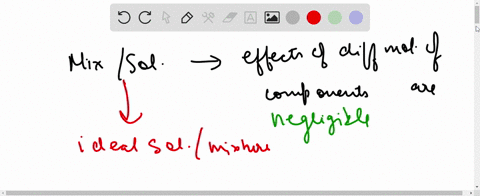 Mix/Sol. → effects of diff mol. of
components are
negligible
ideal sol./mixture